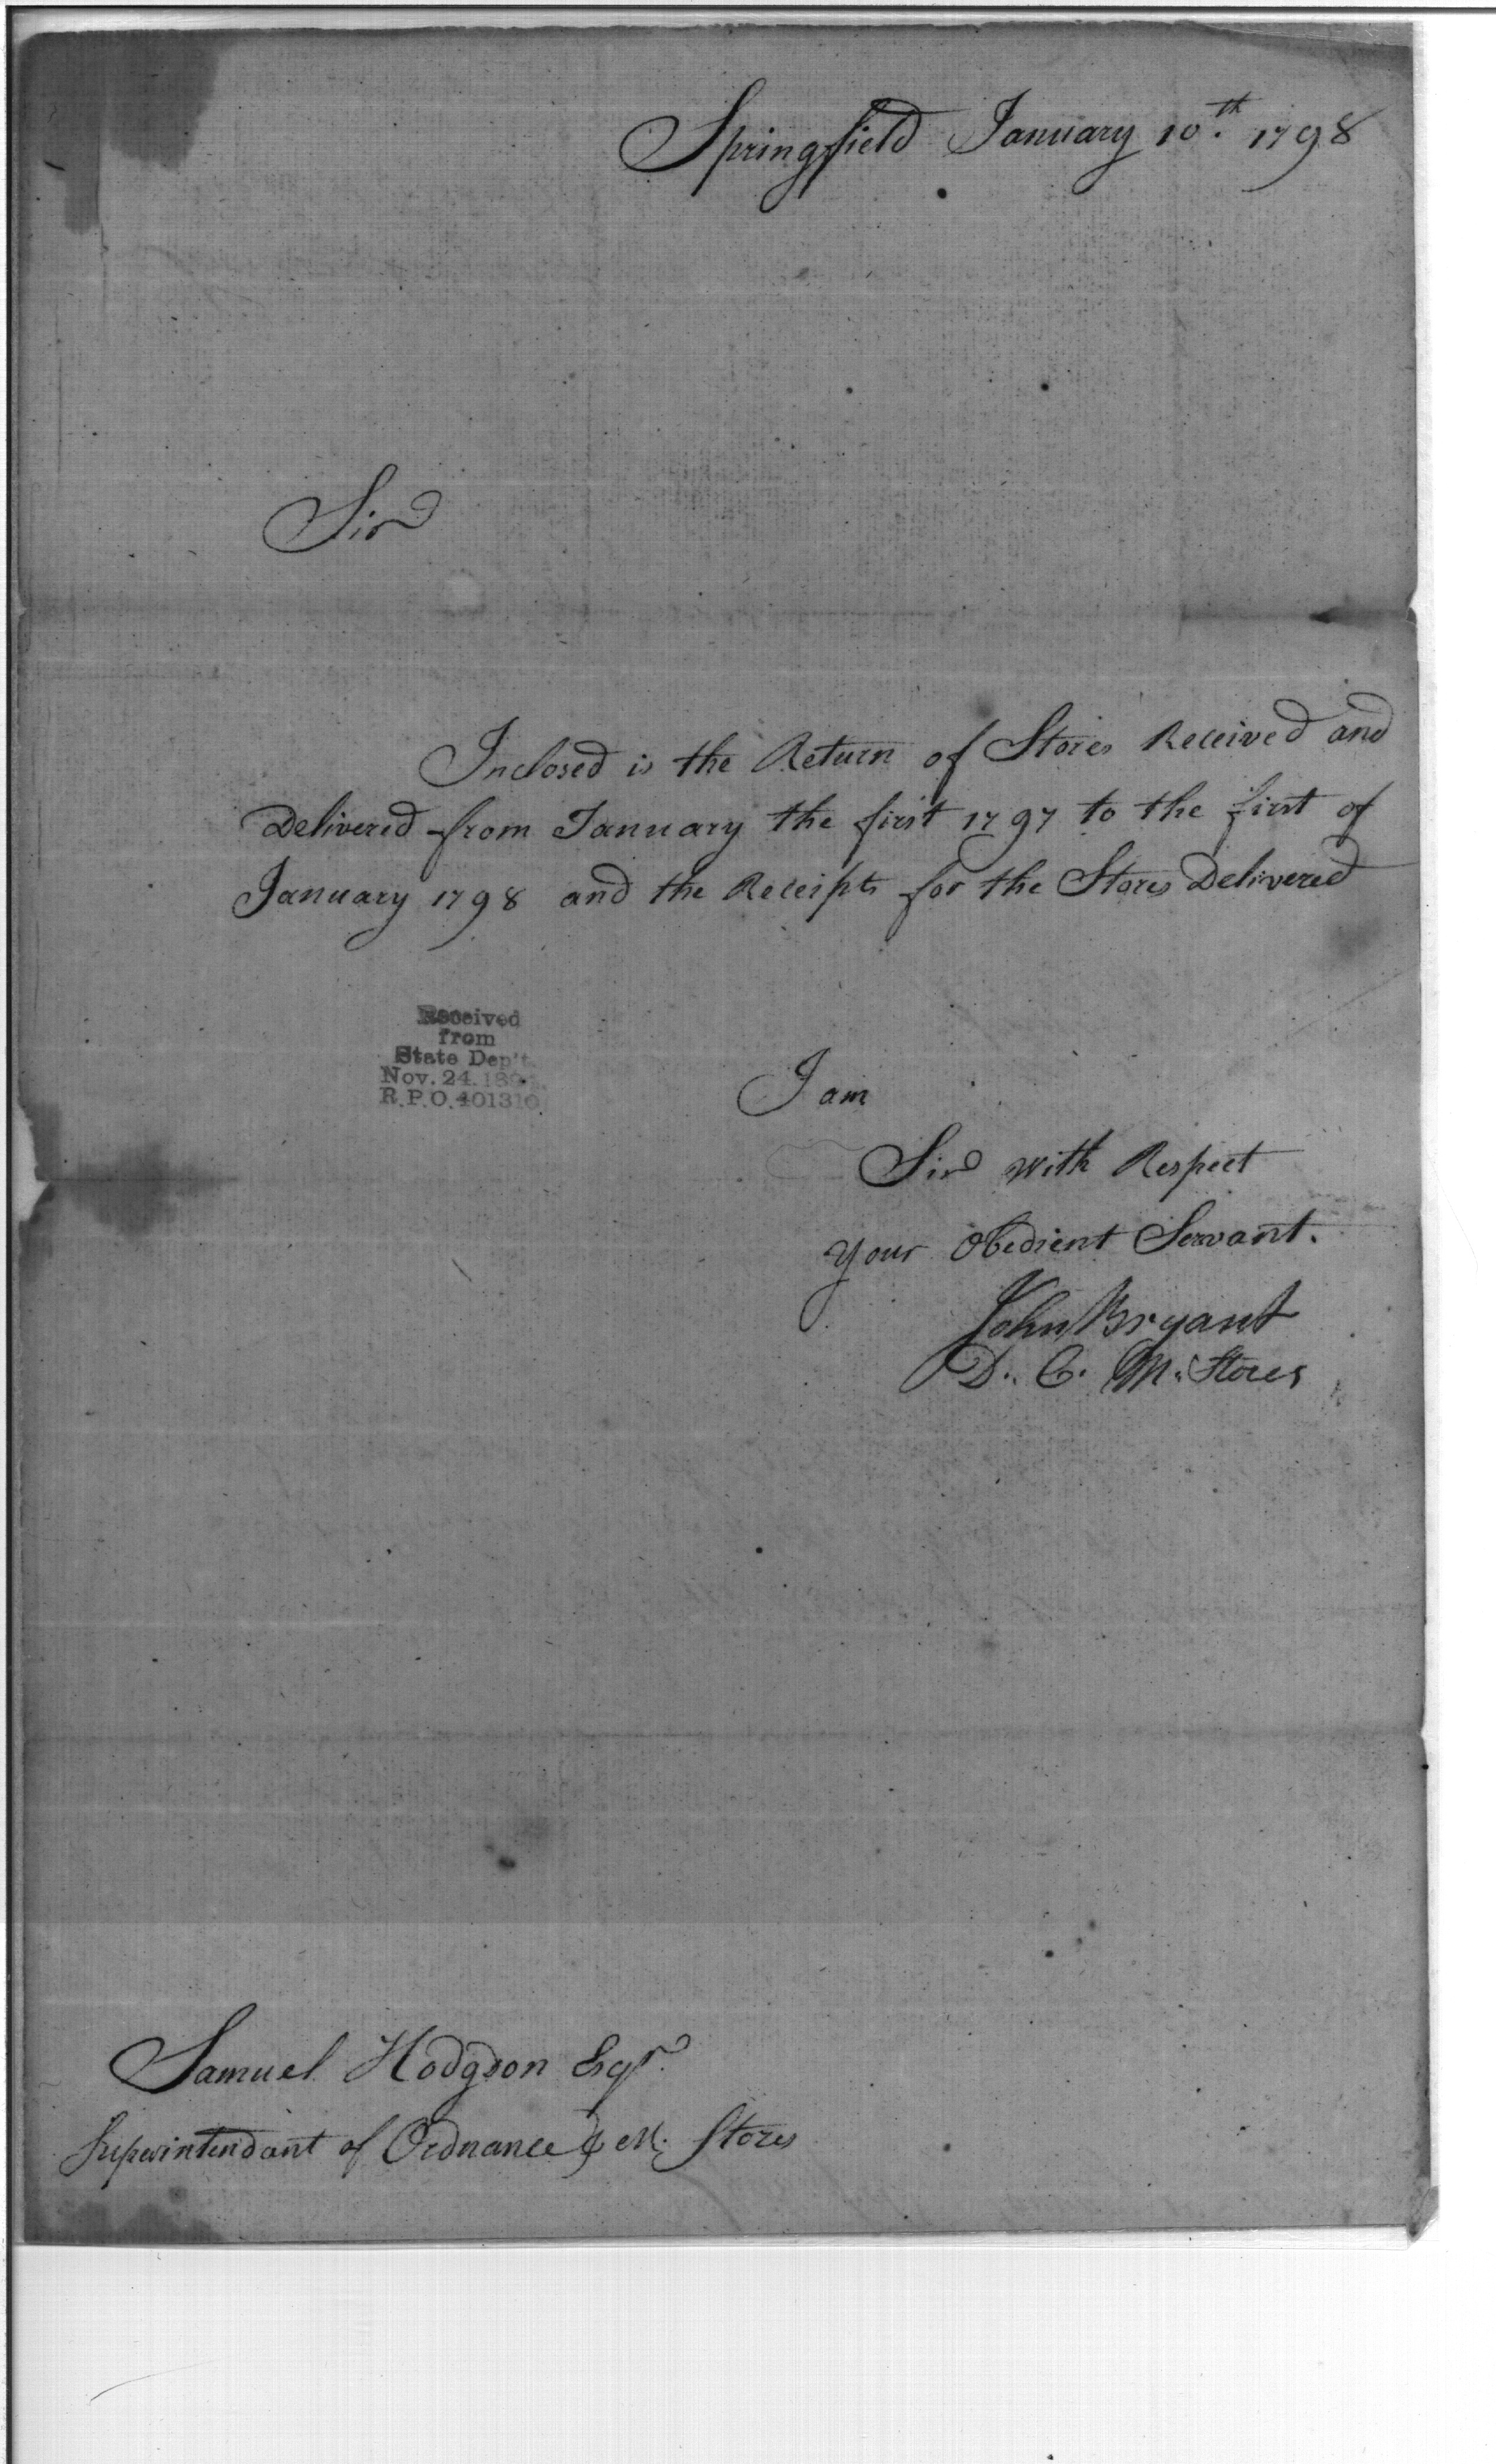 Springfield January 10th. 1798
Sir
Inclosed is the Return of Stores Received and
Delivered from January the first 1797 to the first of
January 1798 and the Receipts for the Stores Delivered
Received
from
State Dep't
Nov. 24. 
R.P.O. 401310
I am
Sir with Respect
Your Obedient Servant.
John Bryant
D. C. M. Stores
Samuel Hodgson Esqr.
Superintendant of Ordnance & M. Stores